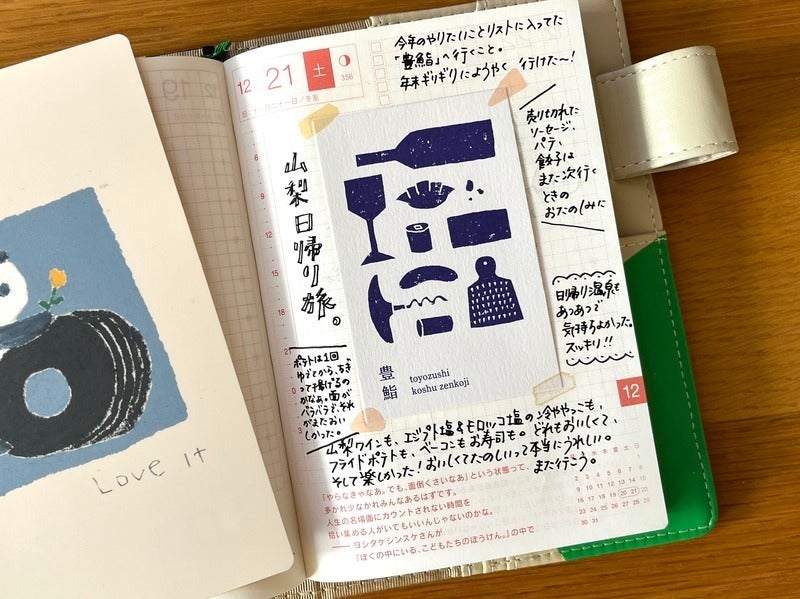 12 21 土
356
今年のやりたいことリストに入ってた
「豊鮨」へ行くこと。
年末ギリギリにようやく行けた〜!
山梨日帰り旅。
売り切れた
ソーセージ、
パテ、
餃子は
また次行く
ときの
おたのしみに
日帰り温泉も
あつあつで
気持ちよかった。
スッキリ!!
ポテトは1回
ゆでてから、ちぎ
って揚げるの
かなぁ。面が
バラバラで、それ
がまたおい
しかった。
豊鮨
toyozushi
koshu zenkoji
12
山梨ワインも、エジプト塩&モロッコ塩の冷ややっこも、
フライドポテトも、ベーコンもお寿司も。どれもおいしくて、
そして楽しかった!おいしくてたのしいって本当にうれしい。
また行こう。
「やらなきゃなあ。でも、面倒くさいなあ」という状態って、
多かれ少なかれみんなあるはずです。
人生の名場面にカウントされない時間を
拾い集める人がいてもいいんじゃないのかな。
——ヨシタケシンスケさんが
『ぼくの中にいる、こどもたちのぼうけん。』の中で
月 火 水 木 金 土 日
2 3 4 5 6 7 8
9 10 11 12 13 14 15
16 17 18 19 20 21 22
23 24 25 26 27 28 29
30 31
Love it